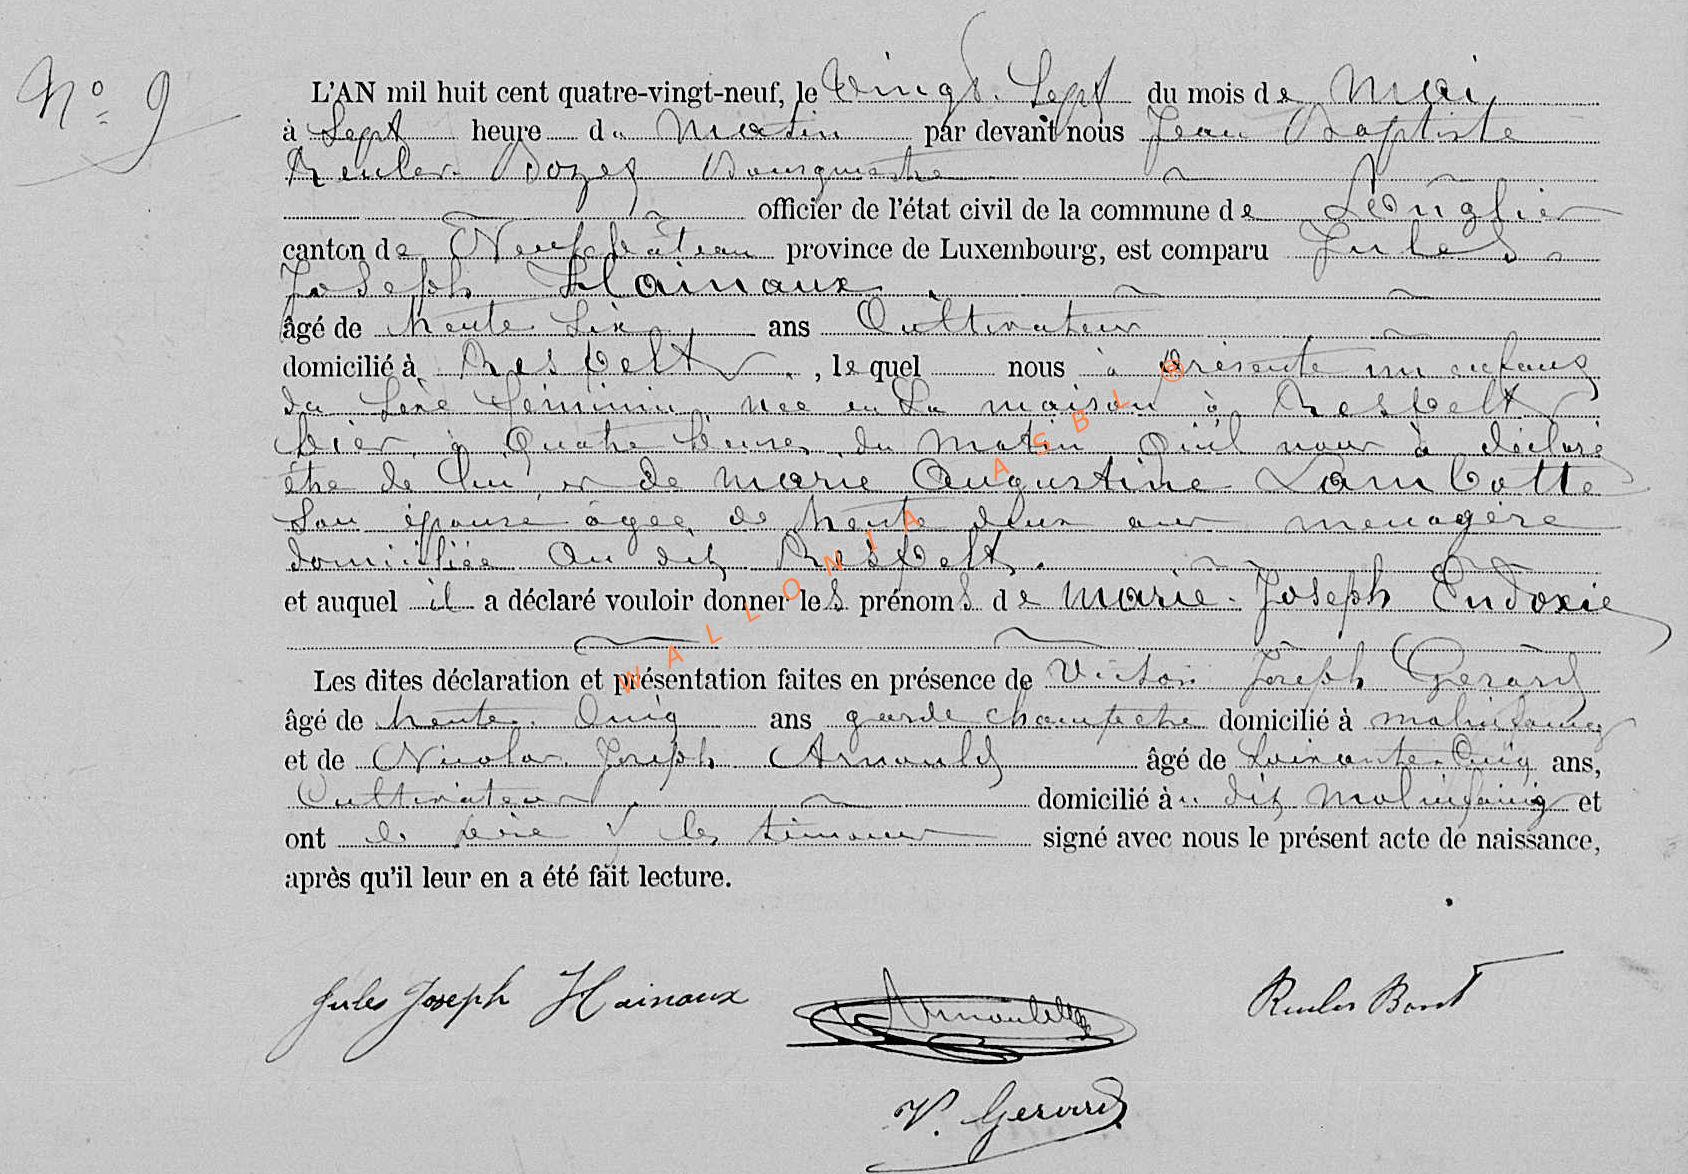 N° 9
L'AN mil huit cent quatre-vingt-neuf, le vingt-Sept du mois de Mai
à Sept heure du Matin par devant nous Jean Baptiste
Reuler Bourgmestre
officier de l'état civil de la commune de Longlier
canton de Neufchâteau province de Luxembourg, est comparu Jules
Joseph Hainaux
âgé de trente Six ans Cultivateur
domicilié à Respelt, lequel nous à présenté un enfant
du Sexe féminin, née en Sa maison à Respelt
hier à Quatre heures du Matin Qu'il nous à déclaré
être de lui et de Marie Augustine Lambotte
Son épouse âgée de trente deux ans menagère
domiciliée Au dit Respelt.
et auquel il a déclaré vouloir donner les prénoms de Marie-Joseph Eudoxie
Les dites déclaration et présentation faites en présence de Victor Joseph Gérard
âgé de trente-Cinq ans garde champetre domicilié à Molinfaing
et de Nicolas Joseph Arnould âgé de Soixante-Cinq ans,
Cultivateur domicilié àu dit Molinfaing et
ont le père & les témoins signé avec nous le présent acte de naissance,
après qu'il leur en a été fait lecture.
Jules Joseph Hainaux Arnould Reuler
V. Gerard
WALLONIA ASBL ®